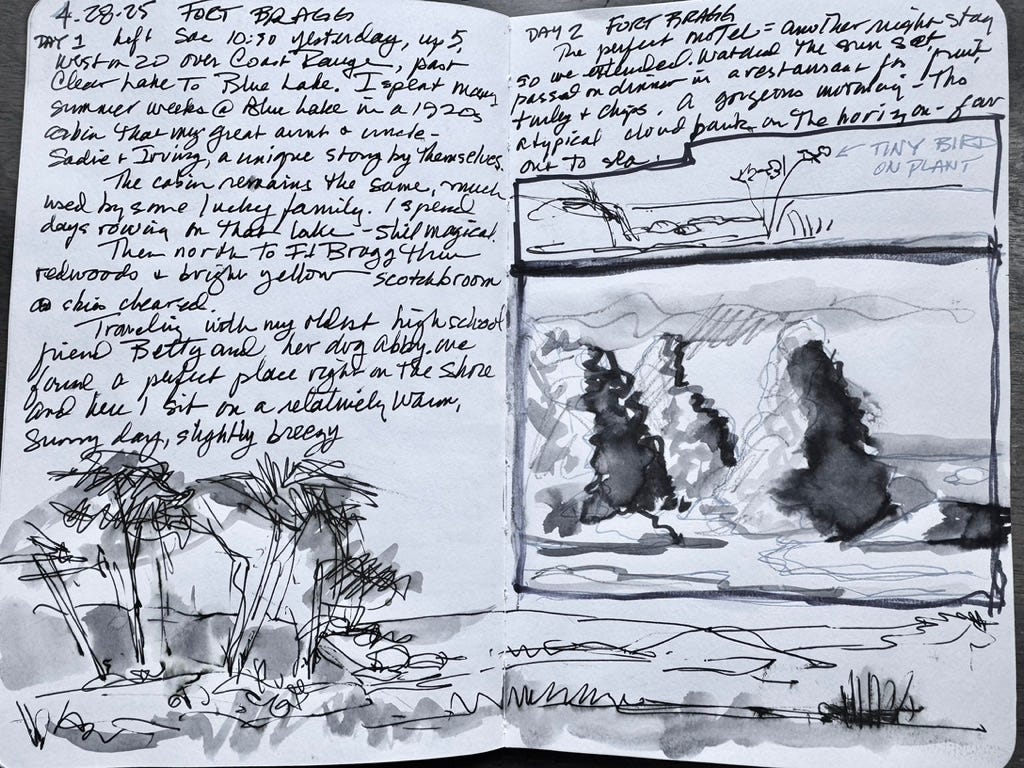 4.28.25 FORT BRAGG
DAY 1 Left Sac 10:30 yesterday, up 5,
west on 20 over Coast Range, past
Clear Lake to Blue Lake. I spent many
summer weeks @ Blue Lake in a 1920s
cabin that my great aunt & uncle-
Sadie & Irving, a unique story by themselves.
The cabin remains the same, much
used by some lucky family. I spend
days rowing on that lake - still magical.
Then north to Ft Bragg thru
redwoods & bright yellow scotchbroom
skies cleared.
Traveling with my oldest high school
friend Betty and her dog Abby. We
found a perfect place right on the shore
and here I sit on a relatively warm,
sunny day, slightly breezy
DAY 2 FORT BRAGG
The perfect motel = another night stay
so we extended. Watched the sun set,
passed on dinner in a restaurant for fruit,
turkey & chips. A gorgeous morning - tho
atypical cloud bank on the horizon - far
out to sea.
← TINY BIRD
ON PLANT